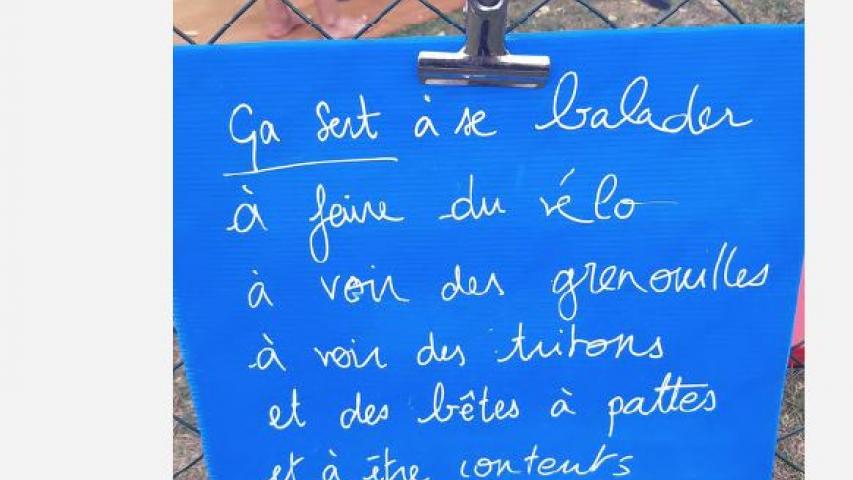 ça sert à se balader
à faire du vélo
à voir des grenouilles
à voir des tritons
et des bêtes à pattes
et à être contents